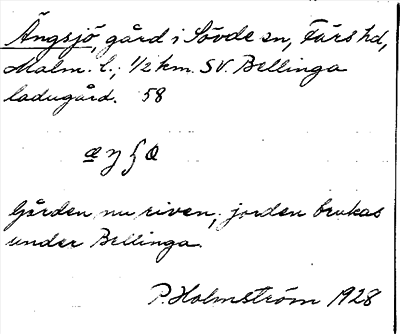 Ängsjö, gård i Sövde sn, Färs hd,
Malm. l.; 1/2 km. SV. Bellinga
ladugård. 58
Gården nu riven; jorden brukas
under Bellinga.
P. Holmström 1928